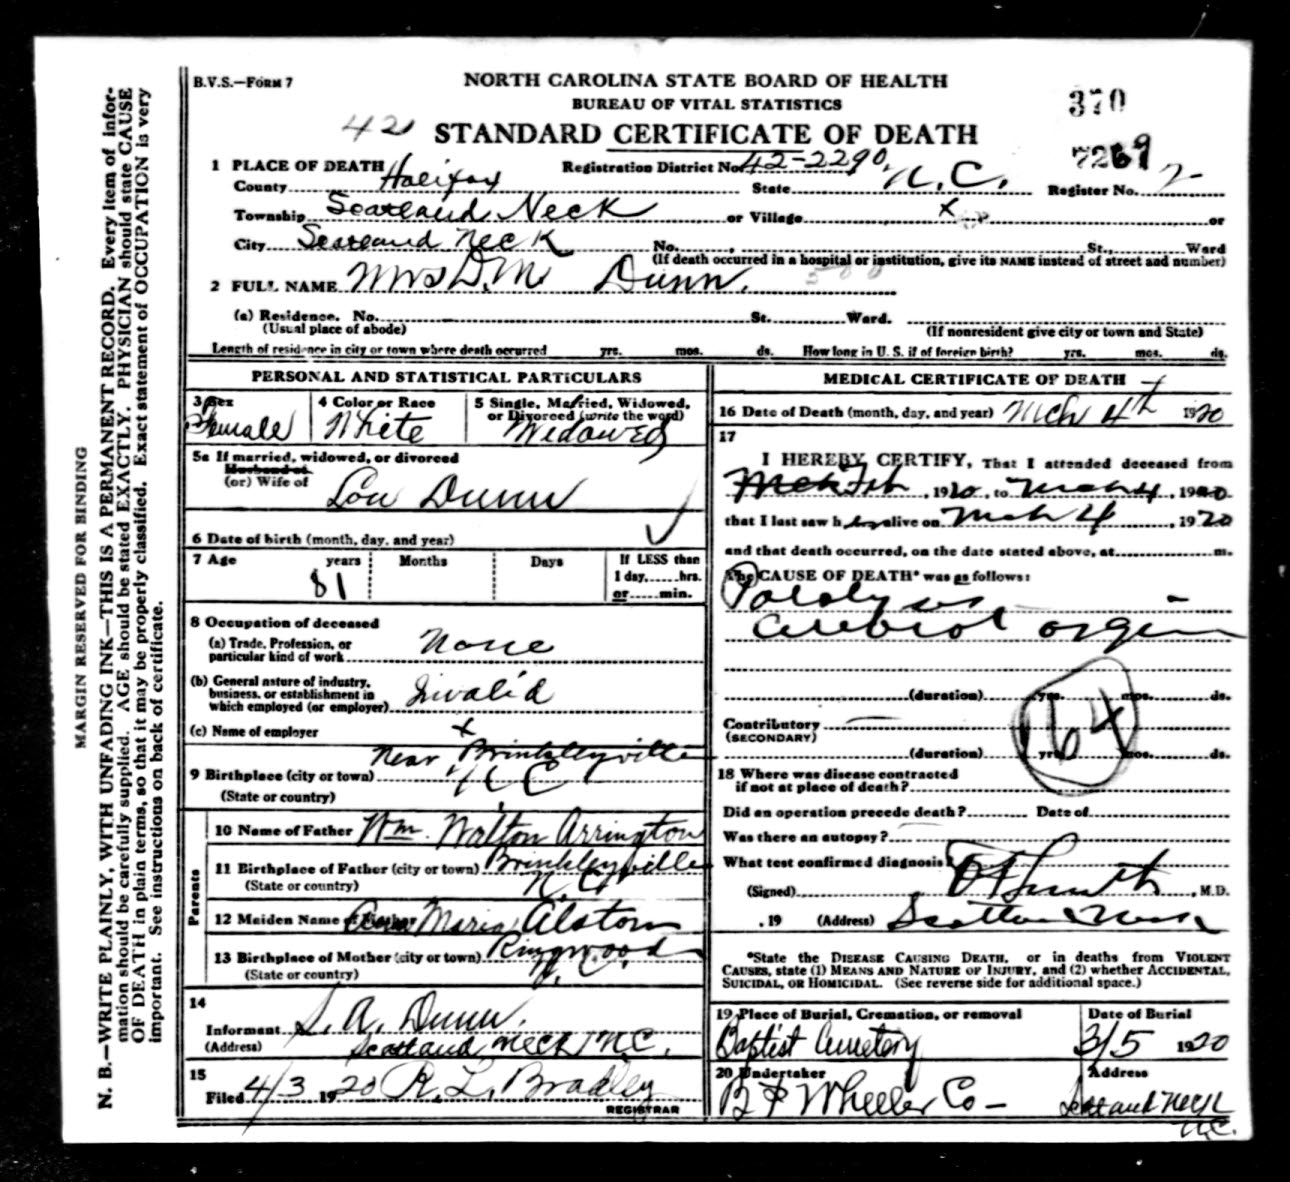 B.V.S.—FORM 7
NORTH CAROLINA STATE BOARD OF HEALTH
BUREAU OF VITAL STATISTICS
370
42
STANDARD CERTIFICATE OF DEATH
7269
1 PLACE OF DEATH Registration District No. 42-2290
County Halifax State N.C. Register No. 2
Township Scotland Neck or Village x or
City Scotland Neck No. St., Ward
(If death occurred in a hospital or institution, give its NAME instead of street and number)
2 FULL NAME Mrs D.M. Dunn.
(a) Residence. No. St. Ward.
(Usual place of abode) (If nonresident give city or town and State)
Length of residence in city or town where death occurred yrs. mos. ds. How long in U. S. if of foreign birth? yrs. mos. ds.
PERSONAL AND STATISTICAL PARTICULARS
3 Sex 4 Color or Race 5 Single, Married, Widowed,
or Divorced (write the word)
Female White Widowed
5a If married, widowed, or divorced
Husband of
(or) Wife of Lou Dunn
6 Date of birth (month, day, and year)
7 Age years Months Days If LESS than
1 day,......hrs.
81 or......min.
8 Occupation of deceased
(a) Trade, Profession, or
particular kind of work None
(b) General nature of industry,
business, or establishment in
which employed (or employer) Invalid
(c) Name of employer x
near Brinkleyville
9 Birthplace (city or town) N C
(State or country)
Parents
10 Name of Father Wm. Walton Arrington
11 Birthplace of Father (city or town) Brinkleyville
(State or country) N. C.
12 Maiden Name of Mother Maria Alston
13 Birthplace of Mother (city or town) Ringwood
(State or country) N. C.
14
Informant L. A. Dunn.
(Address) Scotland Neck N.C.
15
Filed 4/3 1920 R. L. Bradley
REGISTRAR
MEDICAL CERTIFICATE OF DEATH
16 Date of Death (month, day, and year) Mch 4th 1920
17
I HEREBY CERTIFY, That I attended deceased from
Feb, 1920, to Mch 4, 1920
that I last saw her alive on Mch 4, 1920
and that death occurred, on the date stated above, at m.
The CAUSE OF DEATH* was as follows:
Paralysis
cerebral orgin
(duration) yrs. mos. ds.
Contributory
(SECONDARY)
164
(duration) yrs. mos. ds.
18 Where was disease contracted
if not at place of death?
Did an operation precede death? Date of
Was there an autopsy?
What test confirmed diagnosis
(Signed) Smith, M.D.
, 19 (Address) Scotland Neck
*State the DISEASE CAUSING DEATH, or in deaths from VIOLENT
CAUSES, state (1) MEANS AND NATURE OF INJURY, and (2) whether ACCIDENTAL,
SUICIDAL, OR HOMICIDAL. (See reverse side for additional space.)
19 Place of Burial, Cremation, or removal Date of Burial
Baptist Cemetery 3/5 1920
20 Undertaker Address
B F Wheeler Co — Scotland Neck
N.C.
MARGIN RESERVED FOR BINDING
N. B.—WRITE PLAINLY, WITH UNFADING INK—THIS IS A PERMANENT RECORD. Every item of infor-
mation should be carefully supplied. AGE should be stated EXACTLY. PHYSICIAN should state CAUSE
OF DEATH in plain terms, so that it may be properly classified. Exact statement of OCCUPATION is very
important. See instructions on back of certificate.